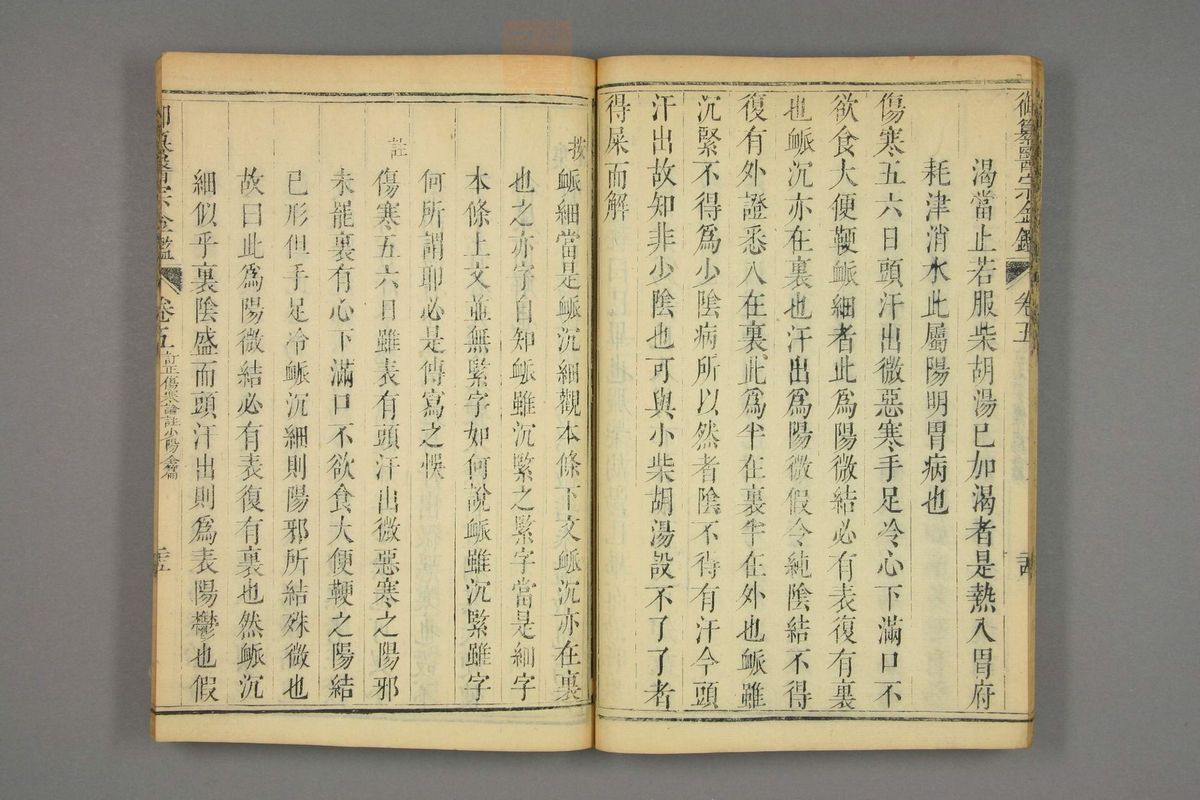 御纂醫宗金鑑 卷五
渴當止若服柴胡湯已加渴者是熱入胃府
耗津消水此屬陽明胃病也
傷寒五六日頭汗出微惡寒手足冷心下滿口不
欲食大便鞕䘑細者此爲陽微結必有表復有裏
也䘑沉亦在裏也汗出爲陽微假令純陰結不得
復有外證悉入在裏此爲半在裏半在外也䘑雖
沉緊不得爲少陰病所以然者陰不得有汗今頭
汗出故知非少陰也可與小柴胡湯設不了了者
得屎而解
按䘑細當是䘑沉細觀本條下文䘑沉亦在裏
也之亦字自知䘑雖沉緊之緊字當是細字
本條上文並無緊字如何說䘑雖沉緊雖字
何所謂耶必是傳寫之悞
註
傷寒五六日雖表有頭汗出微惡寒之陽邪
未罷裏有心下滿口不欲食大便鞕之陽結
已形但手足冷䘑沉細則陽邪所結殊微也
故曰此爲陽微結必有表復有裏也然䘑沉
細似乎裏陰盛而頭汗出則爲表陽鬱也假
御纂醫宗金鑑 卷五 訂正傷寒論註少陽全篇